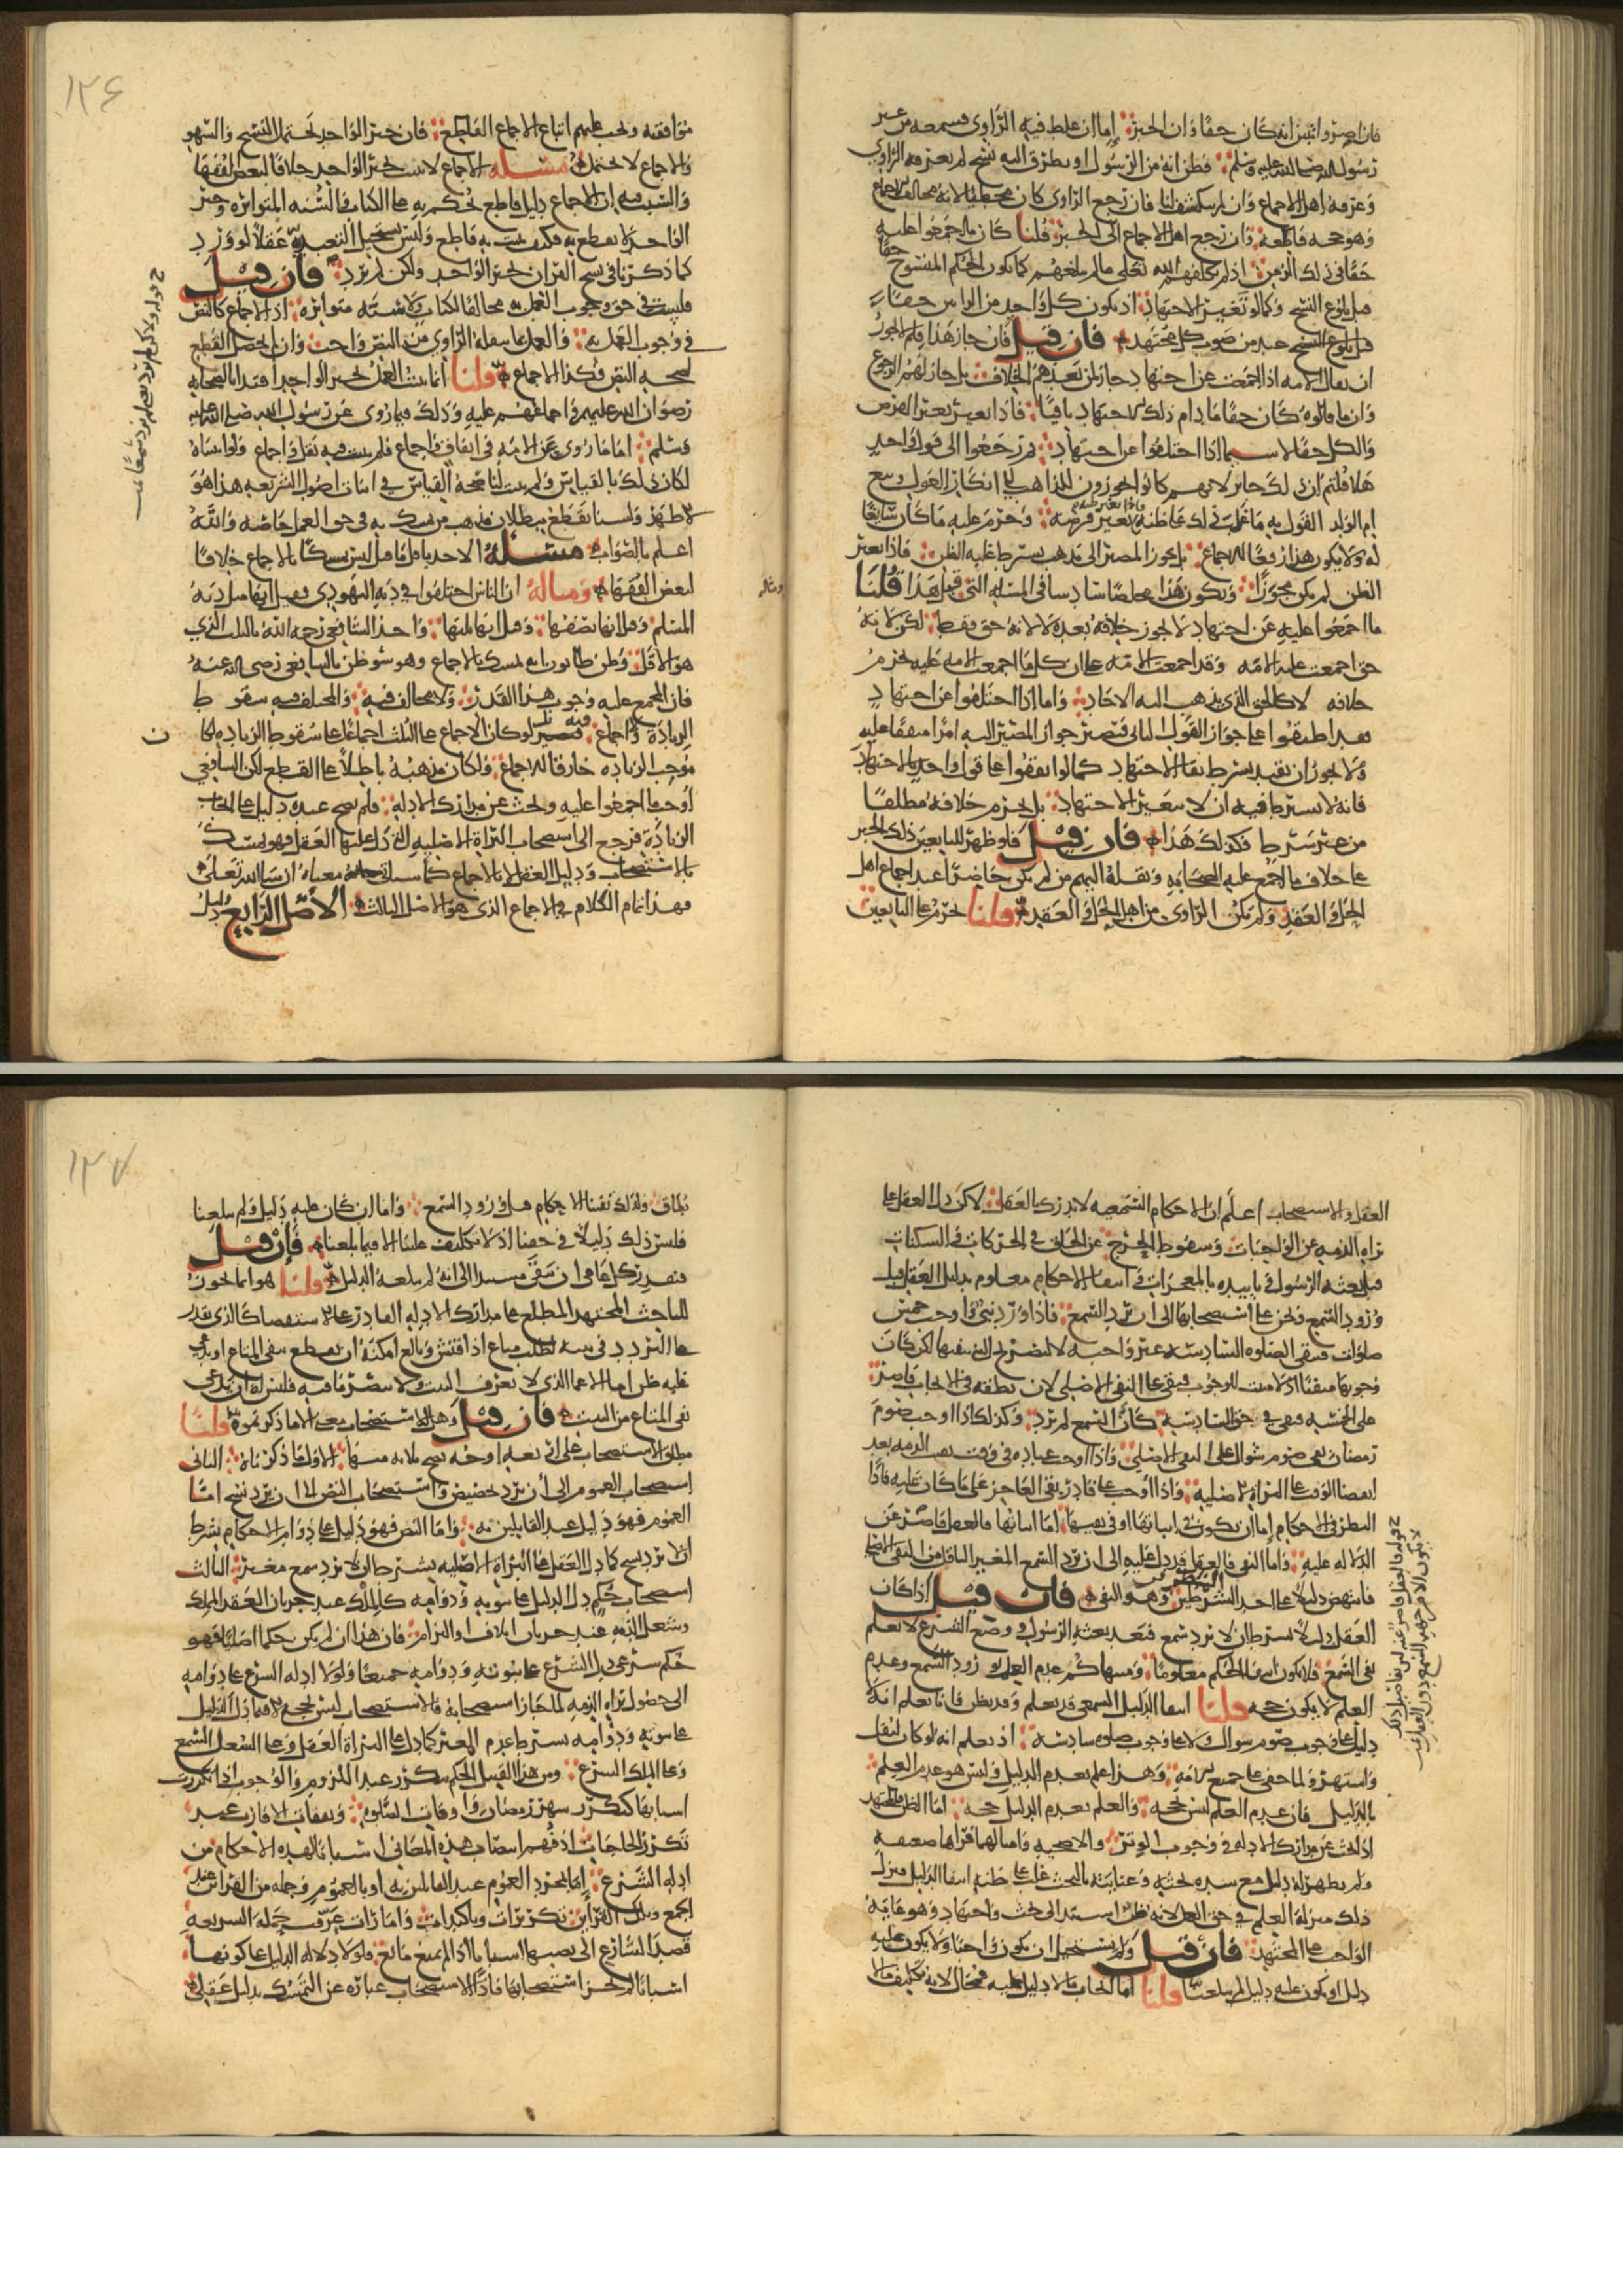 فان اصر واتبين انه كان حقا وان الخبر اما ان غلط فيه الراوي فسمعه من غير
رسول الله صلى الله عليه وسلم فظن انه من الرسول او تطرق اليه نسخ لم يعرفه الراوي
وعرفه اهل الاجماع وان لم ينكشف لنا فان رجع الراوي كان مخطيا لانه خالف الاجماع
وهو حجة قاطعة وان رجع اهل الاجماع الى الخبر قلنا كان ما اجمعوا عليه
حقا في ذلك الزمن اذ لم يكلفهم الله تعالى مالم يبلغهم كما يكون الحكم المنسوخ حقا
قبل بلوغ النسخ وكما لو تغير الاجتهاد او يكون كل واحد من الراين حقا
قبل بلوغ النسخ عند من صوب كل مجتهد فان قيل فان جاز هذا فلم لا يجوز
ان يقال الامة اذا اجمعت عن اجتهاد جاز لمن بعدهم الخلاف بل جاز لهم الرجوع
وان ما قالوه كان حقا ما دام ذلك الاجتهاد باقيا فاذا تغير تغير الفرض
والكل حق لا سيما اذا اختلفوا عن اجتهاد ثم رجعوا الى قول واحد
هلا قلتم ان ذلك جائز لانهم كانوا يجوزون للذاهب الى انكار العول وبيع
ام الولد القول به ما غلب ذلك على ظنه فاذا تغير ظنه تغير فرضه وحرم عليه ما كان سائغا
له ولا يكون هذا رفعا للاجماع بل تجويز المصير الى مذهب بشرط غلبة الظن فاذا تغير
الظن لم يكن مجوزا ويكون هذا مخلصا سادسا في المسئلة التي قبل هذا قلنا
ما اجمعوا عليه عن اجتهاد لا يجوز خلافه بعده لا لانه حق فقط لكن لانه
حق اجمعت عليه الامة وقد اجمعت الامة على ان كل ما اجمعت الامة عليه يحرم
خلافه لا كالحق الذي يذهب اليه الاحاد واما اذا اختلفوا عن اجتهاد
فقد اطبقوا على جواز القول الثاني فيصير جواز المصير اليه امرا متفقا عليه
ولا يجوز ان يقيد بشرط بقاء الاجتهاد كما لو اتفقوا على قول واحد بالاجتهاد
فانه لا يشترط فيه ان لا يتغير الاجتهاد بل يحرم خلافه مطلقا
من غير شرط فكذلك هذا فان قيل فلو ظهر للتابعين ذلك الخبر
على خلاف ما اجمع عليه الصحابة ونقله اليهم من لم يكن حاضرا عند اجماع اهل
الحل والعقد ولم يكن الراوي من اهل الحل والعقد قلنا يحرم على التابعين
١٢٤
موافقته ويجب عليهم اتباع الاجماع القاطع فان خبر الواحد يحتمل النسخ والسهو
والاجماع لا يحتمله مسئلة الاجماع لا يثبت بخبر الواحد خلافا لبعض الفقهاء
والسبب فيه ان الاجماع دليل قاطع يحكم به على الكتاب والسنة المتواترة وخبر
الواحد لا يقطع به فكيف يثبت به قاطع وليس يستحيل التعبد به عقلا لو ورد
كما ذكرنا في نسخ القران بخبر الواحد ولكن لم يرد فان قيل
فليثبت في حق وجوب العمل به مخالفا لكتاب ولا سنة متواترة اذ الاجماع كالنص
في وجوب العمل به والعمل بما ينقله الراوي من النص واجب وان لم يحصل القطع
بصحة النص فكذا الاجماع قلنا انما يثبت العمل بخبر الواحد اقتدا بالصحابة
رضوان الله عليهم واجماعهم عليه وذلك فيما روي عن رسول الله صلى الله عليه
وسلم اما ما روي عن الامة في اتفاق واجماع فلم يثبت فيه نقل واجماع ولو اثبتناه
لكان ذلك بالقياس ولم يثبت لنا صحة القياس في اثبات اصول الشريعة هذا هو
الاظهر ولسنا نقطع ببطلان مذهب من يتمسك به في حق العمل خاصة والله
اعلم بالصواب مسئلة الاخذ باقل ما قيل ليس تمسكا بالاجماع خلافا
لبعض الفقهاء ومثاله ان الناس اختلفوا في دية اليهودي فقيل انها مثل دية
المسلم وقيل انها نصفها وقيل انها ثلثها واخذ الشافعي رحمه الله بالثلث الذي
هو الاقل وظن ظانون انه تمسك بالاجماع وهو سوء ظن بالشافعي رضي الله عنه
فان المجمع عليه وجوب هذا القدر ولا مخالف فيه والمختلف فيه سقوط
الزيادة ولا اجماع فيه بل لو كان الاجماع على الثلث اجماعا على سقوط الزيادة لكان
موجب الزيادة خارقا للاجماع ولكان مذهبه باطلا على القطع لكن الشافعي
اوجب ما اجمعوا عليه وبحث عن مدارك الادلة فلم يصح عنده دليل على ايجاب
الزيادة فرجع الى استصحاب البراة الاصلية التي دل عليها العقل فهو تمسك
بالاستصحاب ودليل العقل لا بالاجماع كما سياتي معناه ان شا الله تعالى
فهذا تمام الكلام في الاجماع الذي هو الاصل الثالث الاصل الرابع دليل
١٢٧
العقل والاستصحاب اعلم ان الاحكام السمعية لا تدرك بالعقل لكن دل العقل على
براة الذمة عن الواجبات وسقوط الحرج عن الخلق في الحركات والسكنات
قبل بعثة الرسول وتاييده بالمعجزات وانتفا الاحكام معلوم بدليل العقل قبل
ورود السمع ونحن على استصحابها الى ان يرد السمع فاذا ورد نبي واوجب خمس
صلوات فتبقى الصلوة السادسة غير واجبة لا بتصريح النبي بنفيها لكن كان
وجوبها منتفيا اذ لا مثبت للوجوب فبقي على النفي الاصلي لان نطقه في الايجاب قاصر
على الخمسة فبقي في حق السادسة كان السمع لم يرد وكذلك اذا اوجب صوم
رمضان بقي صوم شوال على النفي الاصلي واذا اوجب عبادة في وقت بقيت الذمة بعد
انقضا الوقت على البراة الاصلية واذا اوجب على قادر بقي العاجز على ما كان عليه فاذا
النظر في الاحكام اما ان يكون في اثباتها او في نفيها اما اثباتها فالعقل قاصر عن
الدلالة عليه واما النفي فالعقل قد دل عليه الى ان يرد السمع المغير الناقل من النفي الاصلي
فانتهض دليلا على احد الشطرين وهو النفي فان قيل اذا كان
العقل دليلا بشرط ان لا يرد سمع فبعد بعثة الرسول ووضع الشرع لا نعلم
نفي السمع فلا يكون انتفا الحكم معلوما ومنتهاكم عدم العلم بورود السمع وعدم
العلم لا يكون حجة قلنا انتفا الدليل السمعي قد يعلم وقد يظن فانا نعلم انه لا
دليل على وجوب صوم شوال ولا على وجوب صلوة سادسة اذ نعلم انه لو كان لنقل
وانتشر ولما خفي على جميع الامة وهذا علم بعدم الدليل وليس هو عدم العلم
بالدليل فان عدم العلم ليس بحجة والعلم بعدم الدليل حجة اما الظن فالمجتهد
اذا بحث عن مدارك الادلة في وجوب الوتر والاضحية وامثالهما فراها ضعيفة
ولم يظهر له دليل مع شدة بحثه وعنايته بالبحث غلب على ظنه انتفا الدليل فنزل
ذلك منزلة العلم في حق العمل لانه ظن استند الى بحث واجتهاد وهو غاية
الواجب على المجتهد فان قيل ولم يستحيل ان يكون واجبا ولا يكون عليه
دليل او يكون عليه دليل لم يبلغنا قلنا اما ايجاب ما لا دليل عليه فمحال لانه تكليف ما لا
يطاق ولذلك نفينا الاحكام قبل ورود السمع واما ان كان عليه دليل ولم يبلغنا
فليس ذلك دليلا في حقنا اذ لا تكليف علينا الا فيما بلغنا فان قيل
فيقدر كل عامي ان ينفي مستندا الى انه لم يبلغه الدليل قلنا هو انما يجوز
للباحث المجتهد المطلع على مدارك الادلة القادر على الاستقصا كالذي يقدر
على التردد في بيته لطلب متاع اذا فتش وبالغ امكنه ان يقطع بنفي المتاع او يدعي
غلبة ظن اما الاعمى الذي لا يعرف البيت ولا يبصر ما فيه فليس له ان يدعي
نفي المتاع من البيت فان قيل وهل للاستصحاب معنى الا ما ذكرتموه قلنا
يطلق الاستصحاب على اربعة اوجه يصح ثلاثة منها الاول ما ذكرناه الثاني
استصحاب العموم الى ان يرد تخصيص واستصحاب النص الى ان يرد نسخ اما
العموم فهو دليل عند القايلين به واما النص فهو دليل على دوام الاحكام بشرط
ان لا يرد نسخ كما دل العقل على البراة الاصلية بشرط ان لا يرد سمع مغير الثالث
استصحاب حكم دل الدليل على ثبوته ودوامه كالملك عند جريان العقد المملك
وشغل الذمة عند جريان اتلاف او التزام فان هذا ان لم يكن حكما اصليا فهو
حكم شرعي دل الشرع على ثبوته ودوامه جميعا ولولا ادلة الشرع على دوامه
الى حصول براة الذمة لما جاز استصحابه فالاستصحاب ليس بحجة الا فيما دل الدليل
على ثبوته ودوامه بشرط عدم المغير كما دل على البراة العقل وعلى الشغل السمع
وعلى الملك الشرع ومن هذا القبيل الحكم بتكرر عند اللزوم والوجوب اذا تكررت
اسبابها كتكرر شهر رمضان واوقات الصلوة ونفقات الاقارب عند
تكرر الحاجات اذ فهم انتصاب هذه المعاني اسبابا لهذه الاحكام من
ادلة الشرع اما بمجرد العموم عند القايلين به او بالعموم وجملة من القراين عند
الجمع وتلك القراين تكريرات وتاكيدات وامارات عرف حملة الشريعة
قصد الشارع الى نصبها اسبابا اذا لم يمنع مانع فلولا دلالة الدليل على كونها
اسبابا لم يجز استصحابها فاذا الاستصحاب عبارة عن التمسك بدليل عقلي